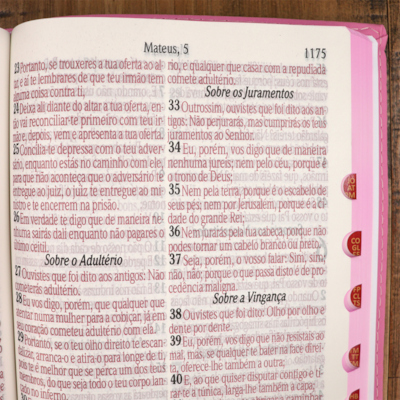 Mateus, 5
1175
23 Portanto, se trouxeres a tua oferta ao al-
ar, e aí te lembrares de que teu irmão tem
alguma coisa contra ti,
24 Deixa ali diante do altar a tua oferta, e
vai reconciliar-te primeiro com teu ir-
mão e, depois, vem e apresenta a tua oferta.
25 Concilia-te depressa com o teu adver-
sário, enquanto estás no caminho com ele,
para que não aconteça que o adversário te
entregue ao juiz, o juiz te entregue ao mi-
nistro e te encerrem na prisão.
26 Em verdade te digo que de maneira ne-
nhuma sairás dali enquanto não pagares o
último ceitil.
Sobre o Adultério
27 Ouvistes que foi dito aos antigos: Não
cometerás adultério.
28 Eu vos digo, porém, que qualquer que
atentar numa mulher para a cobiçar, já em
seu coração cometeu adultério com ela.
29 Portanto, se o teu olho direito te escan-
dalizar, arranca-o e atira-o para longe de ti,
pois te é melhor que se perca um dos teus
membros, do que seja todo o teu corpo lan-
çado no inferno.
rio, e qualquer que casar com a repudiada
comete adultério.
Sobre os Juramentos
33 Outrossim, ouvistes que foi dito aos an-
tigos: Não perjurarás, mas cumprirás os teus
juramentos ao Senhor.
34 Eu, porém, vos digo que de maneira
nenhuma jureis; nem pelo céu, porque é
o trono de Deus;
35 Nem pela terra, porque é o escabelo de
seus pés; nem por Jerusalém, porque é a ci-
dade do grande Rei;
36 Nem jurarás pela tua cabeça, porque não
podes tornar um cabelo branco ou preto.
37 Seja, porém, o vosso falar: Sim, sim;
não, não; porque o que passa disto é de pro-
cedência maligna.
Sobre a Vingança
38 Ouvistes que foi dito: Olho por olho e
dente por dente.
39 Eu, porém, vos digo que não resistais ao
mal, mas, se qualquer te bater na face direi-
ta, oferece-lhe também a outra;
40 E, ao que quiser disputar contigo e ti-
rar-te a túnica, larga-lhe também a capa;